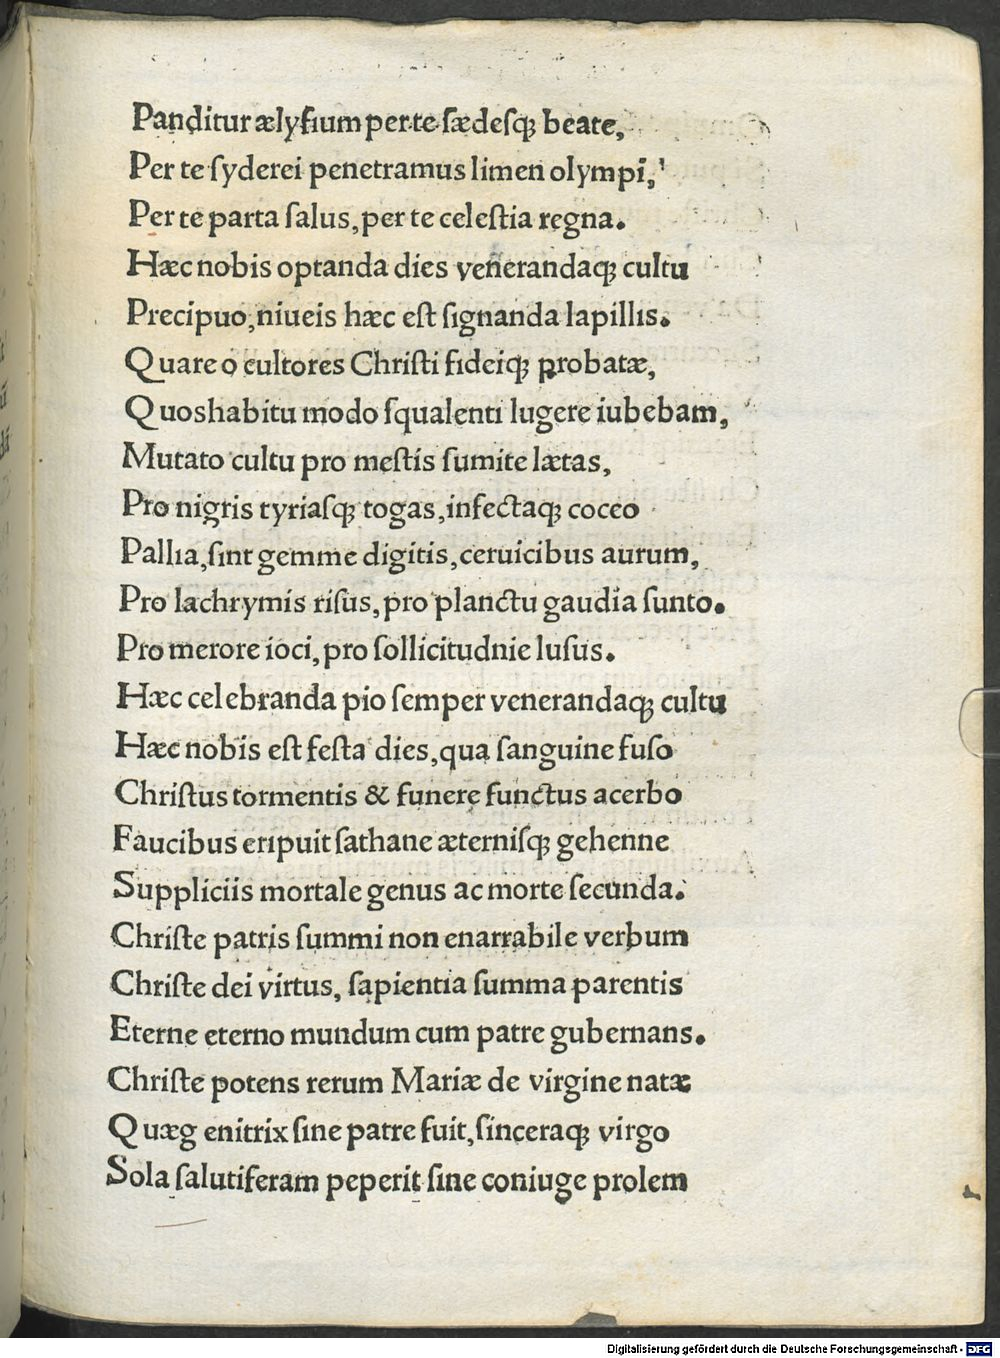 Panditur ælyſium per te ſædesqꝫ beate,
Per te ſyderei penetramus limen olympi,
Per te parta ſalus, per te celeſtia regna.
Hæc nobis optanda dies venerandaqꝫ cultu
Precipuo, niueis hæc eſt ſignanda lapillis.
Quare o cultores Chriſti fideiqꝫ ꝓbatæ,
Quos habitu modo ſqualenti lugere iubebam,
Mutato cultu pro meſtis ſumite lætas,
Pro nigris tyriaſqꝫ togas, infectaqꝫ cocco
Pallia, ſint gemme digitis, ceruicibus aurum,
Pro lachrymis riſus, pro planctu gaudia ſunto.
Pro merore ioci, pro ſollicitudnie luſus.
Hæc celebranda pio ſemper venerandaqꝫ cultu
Hæc nobis eſt feſta dies, qua ſanguine fuſo
Chriſtus tormentis & funere functus acerbo
Faucibus eripuit ſathane æterniſqꝫ gehenne
Suppliciis mortale genus ac morte ſecunda.
Chriſte patris ſummi non enarrabile verbum
Chriſte dei virtus, ſapientia ſumma parentis
Eterne eterno mundum cum patre gubernans.
Chriſte potens rerum Mariæ de virgine natæ
Quæg enitrix ſine patre fuit, ſinceraqꝫ virgo
Sola ſalutiferam peperit ſine coniuge prolem
Digitalisierung gefördert durch die Deutsche Forschungsgemeinschaft - DFG